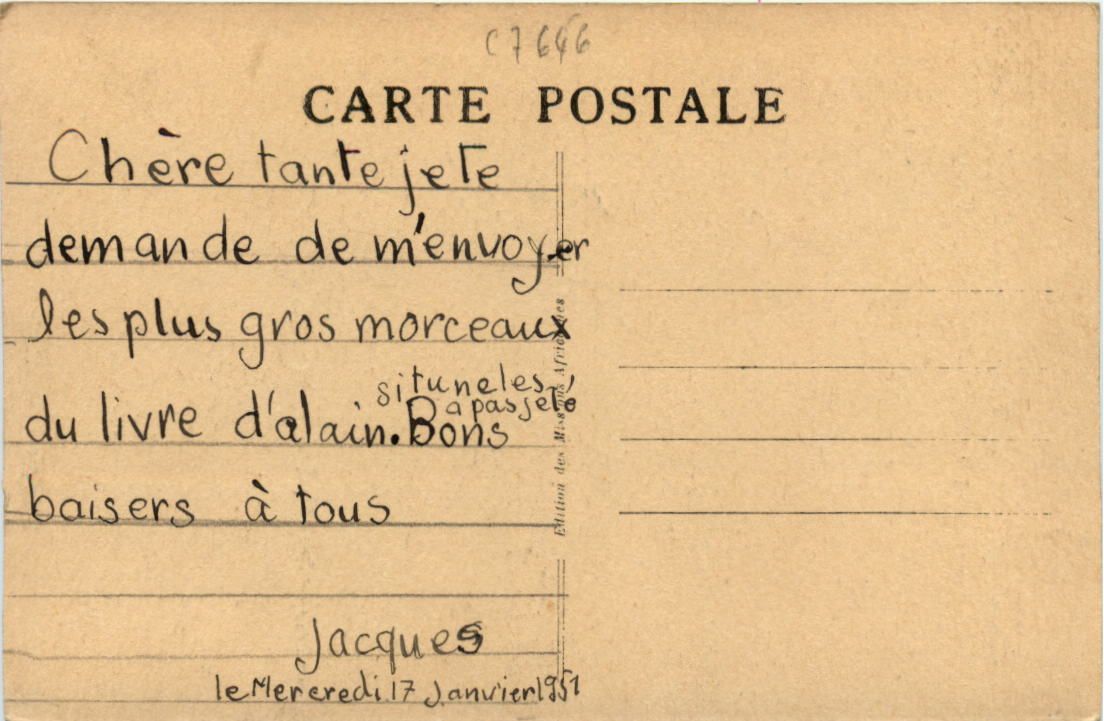 C7646
CARTE POSTALE
Chère tante je te
demande de m'envoyer
les plus gros morceaux
si tu ne les
a pas jeté
du livre d'alain. Bons
baisers à tous
Jacques
le Mercredi 17 Janvier 1951
Edition des Missions Africaines